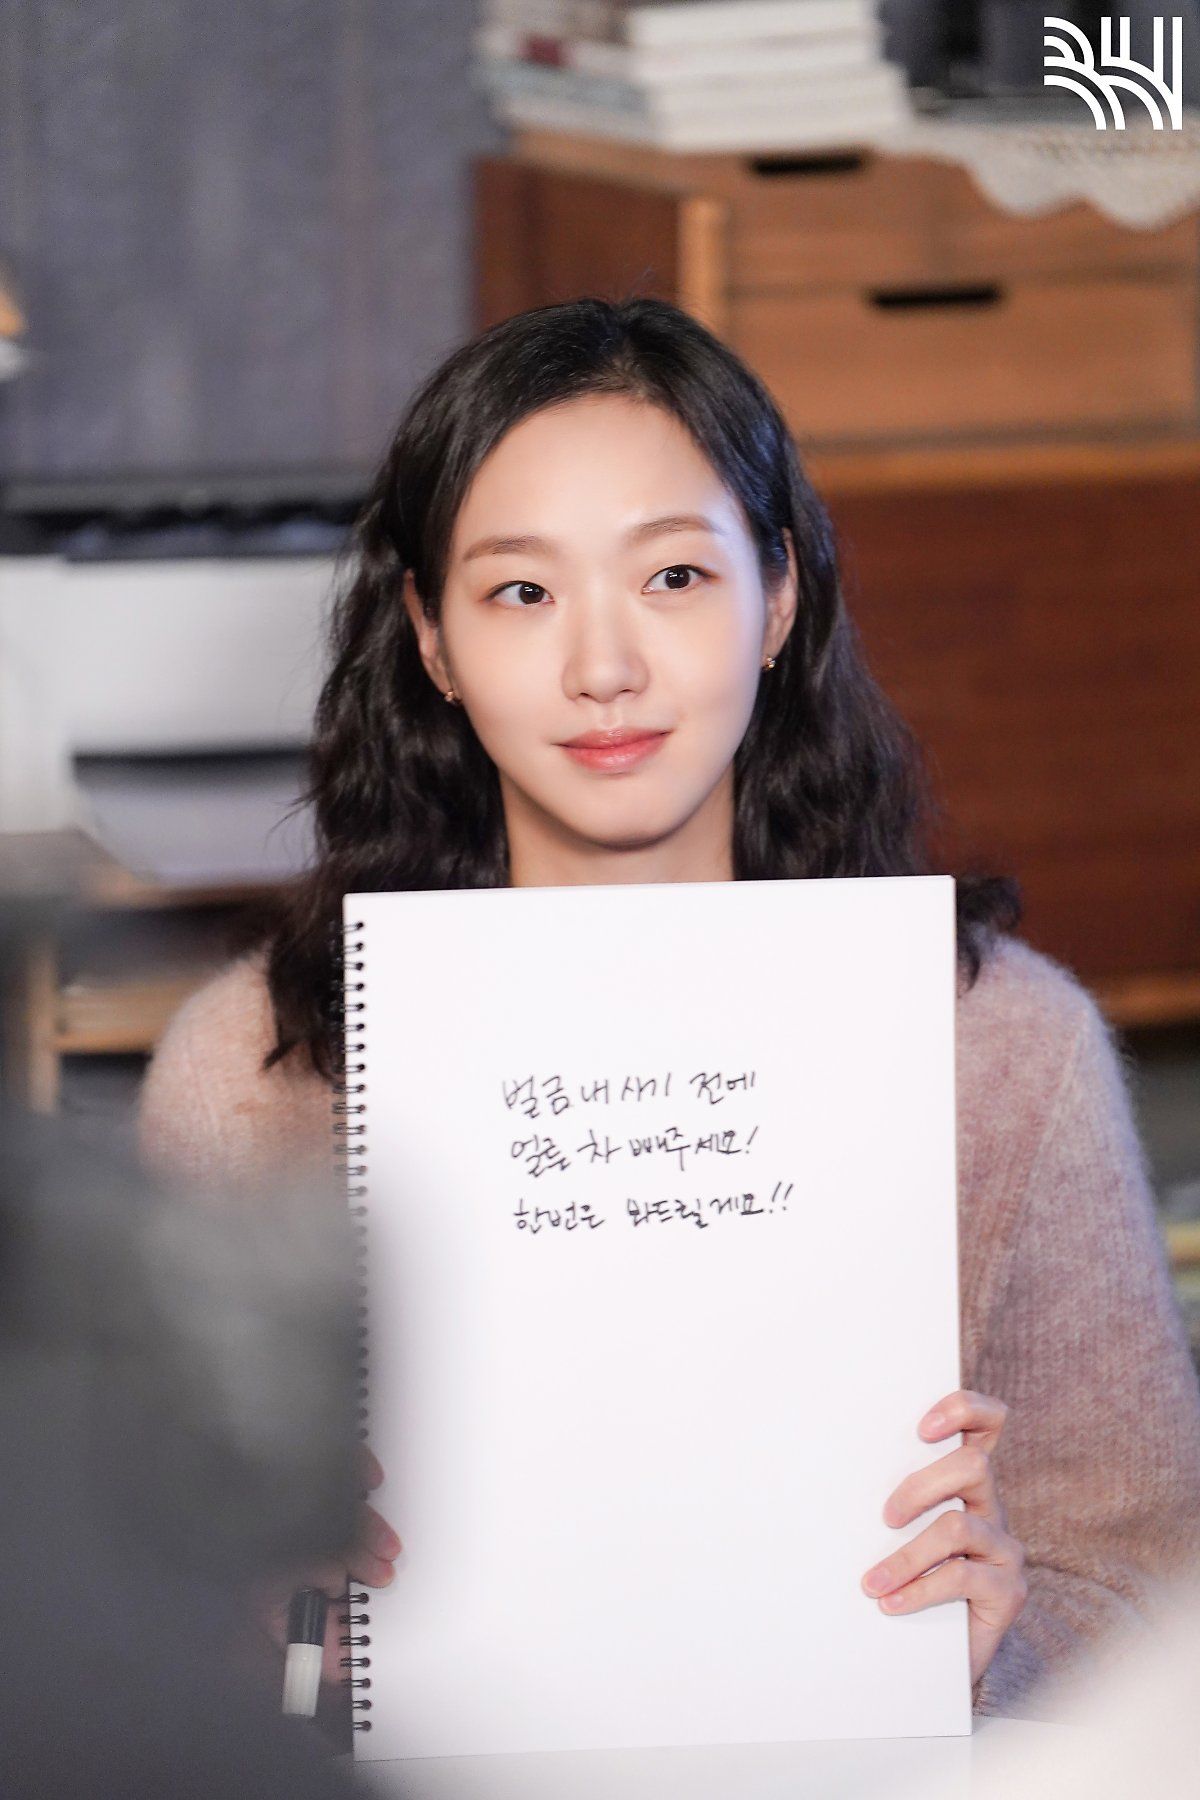 벌금 내시기 전에
얼른 차 빼주세요!
한번은 봐드릴게요!!